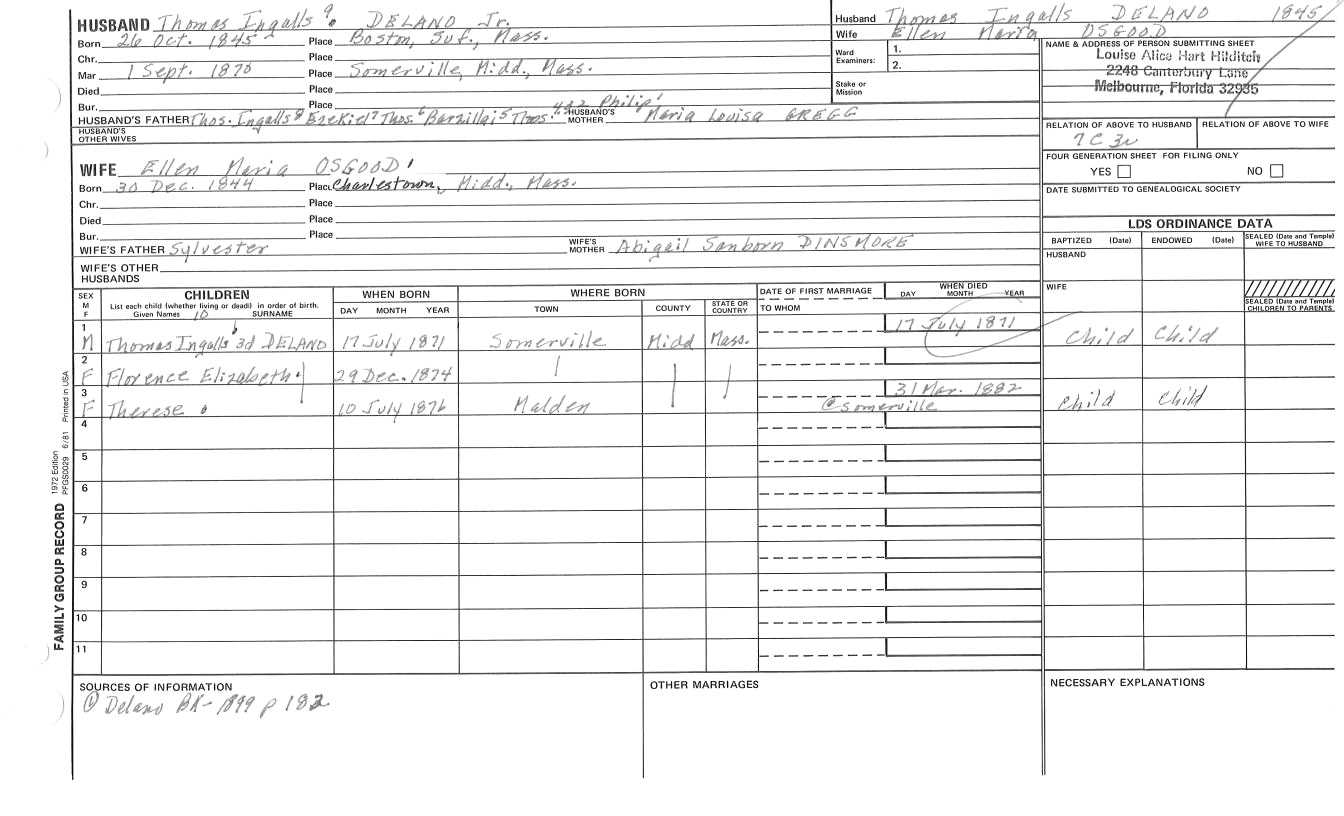 HUSBAND Thomas Ingalls 9. DELANO Jr.
Born 26 Oct. 1845 Place Boston, Suf., Mass.
Chr. Place
Mar 1 Sept. 1870 Place Somerville, Midd., Mass.
Died Place
Bur. Place
HUSBAND'S FATHER Thos. Ingalls 8 Ezekiel 7 Thos. 6 Barzillai 5 Thos. 432 Philip 1 HUSBAND'S MOTHER Maria Louisa GREGG
HUSBAND'S OTHER WIVES
WIFE Ellen Maria OSGOOD
Born 30 Dec. 1844 Place Charlestown, Midd., Mass.
Chr. Place
Died Place
Bur. Place
WIFE'S FATHER Sylvester WIFE'S MOTHER Abigail Sanborn DINSMORE
WIFE'S OTHER HUSBANDS
Husband Thomas Ingalls DELANO 1845
Wife Ellen Maria OSGOOD
Ward Examiners: 1.
2.
Stake or Mission
NAME & ADDRESS OF PERSON SUBMITTING SHEET
Louise Alice Hart Hilditch
2248 Canterbury Lane
Melbourne, Florida 32935
RELATION OF ABOVE TO HUSBAND RELATION OF ABOVE TO WIFE
7C 3
FOUR GENERATION SHEET FOR FILING ONLY
YES NO
DATE SUBMITTED TO GENEALOGICAL SOCIETY
LDS ORDINANCE DATA
BAPTIZED (Date) ENDOWED (Date) SEALED (Date and Temple) WIFE TO HUSBAND
HUSBAND
WIFE
SEALED (Date and Temple) CHILDREN TO PARENTS
SEX M F CHILDREN WHEN BORN WHERE BORN DATE OF FIRST MARRIAGE WHEN DIED
List each child (whether living or dead) in order of birth. DAY MONTH YEAR TOWN COUNTY STATE OR COUNTRY TO WHOM DAY MONTH YEAR
Given Names 10 SURNAME
1 17 July 1871
M Thomas Ingalls 3d DELANO 17 July 1871 Somerville Midd Mass. Child Child
2
F Florence Elizabeth 29 Dec. 1874
3 31 Mar. 1882
F Therese 10 July 1876 Malden @ Somerville Child Child
4
5
6
7
8
9
10
11
SOURCES OF INFORMATION OTHER MARRIAGES NECESSARY EXPLANATIONS
① Delano BK- 1899 p 182
FAMILY GROUP RECORD 1972 Edition PFGS0029 6/81 Printed in USA